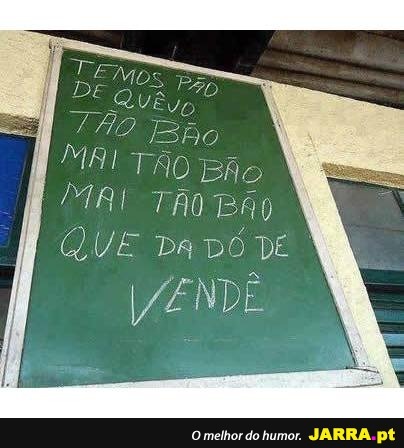 TEMOS PÃO
DE QUÊJO
TÃO BÃO
MAI TÃO BÃO
MAI TÃO BÃO
QUE DA DÓ DE
VENDÊ
O melhor do humor. JARRA.pt